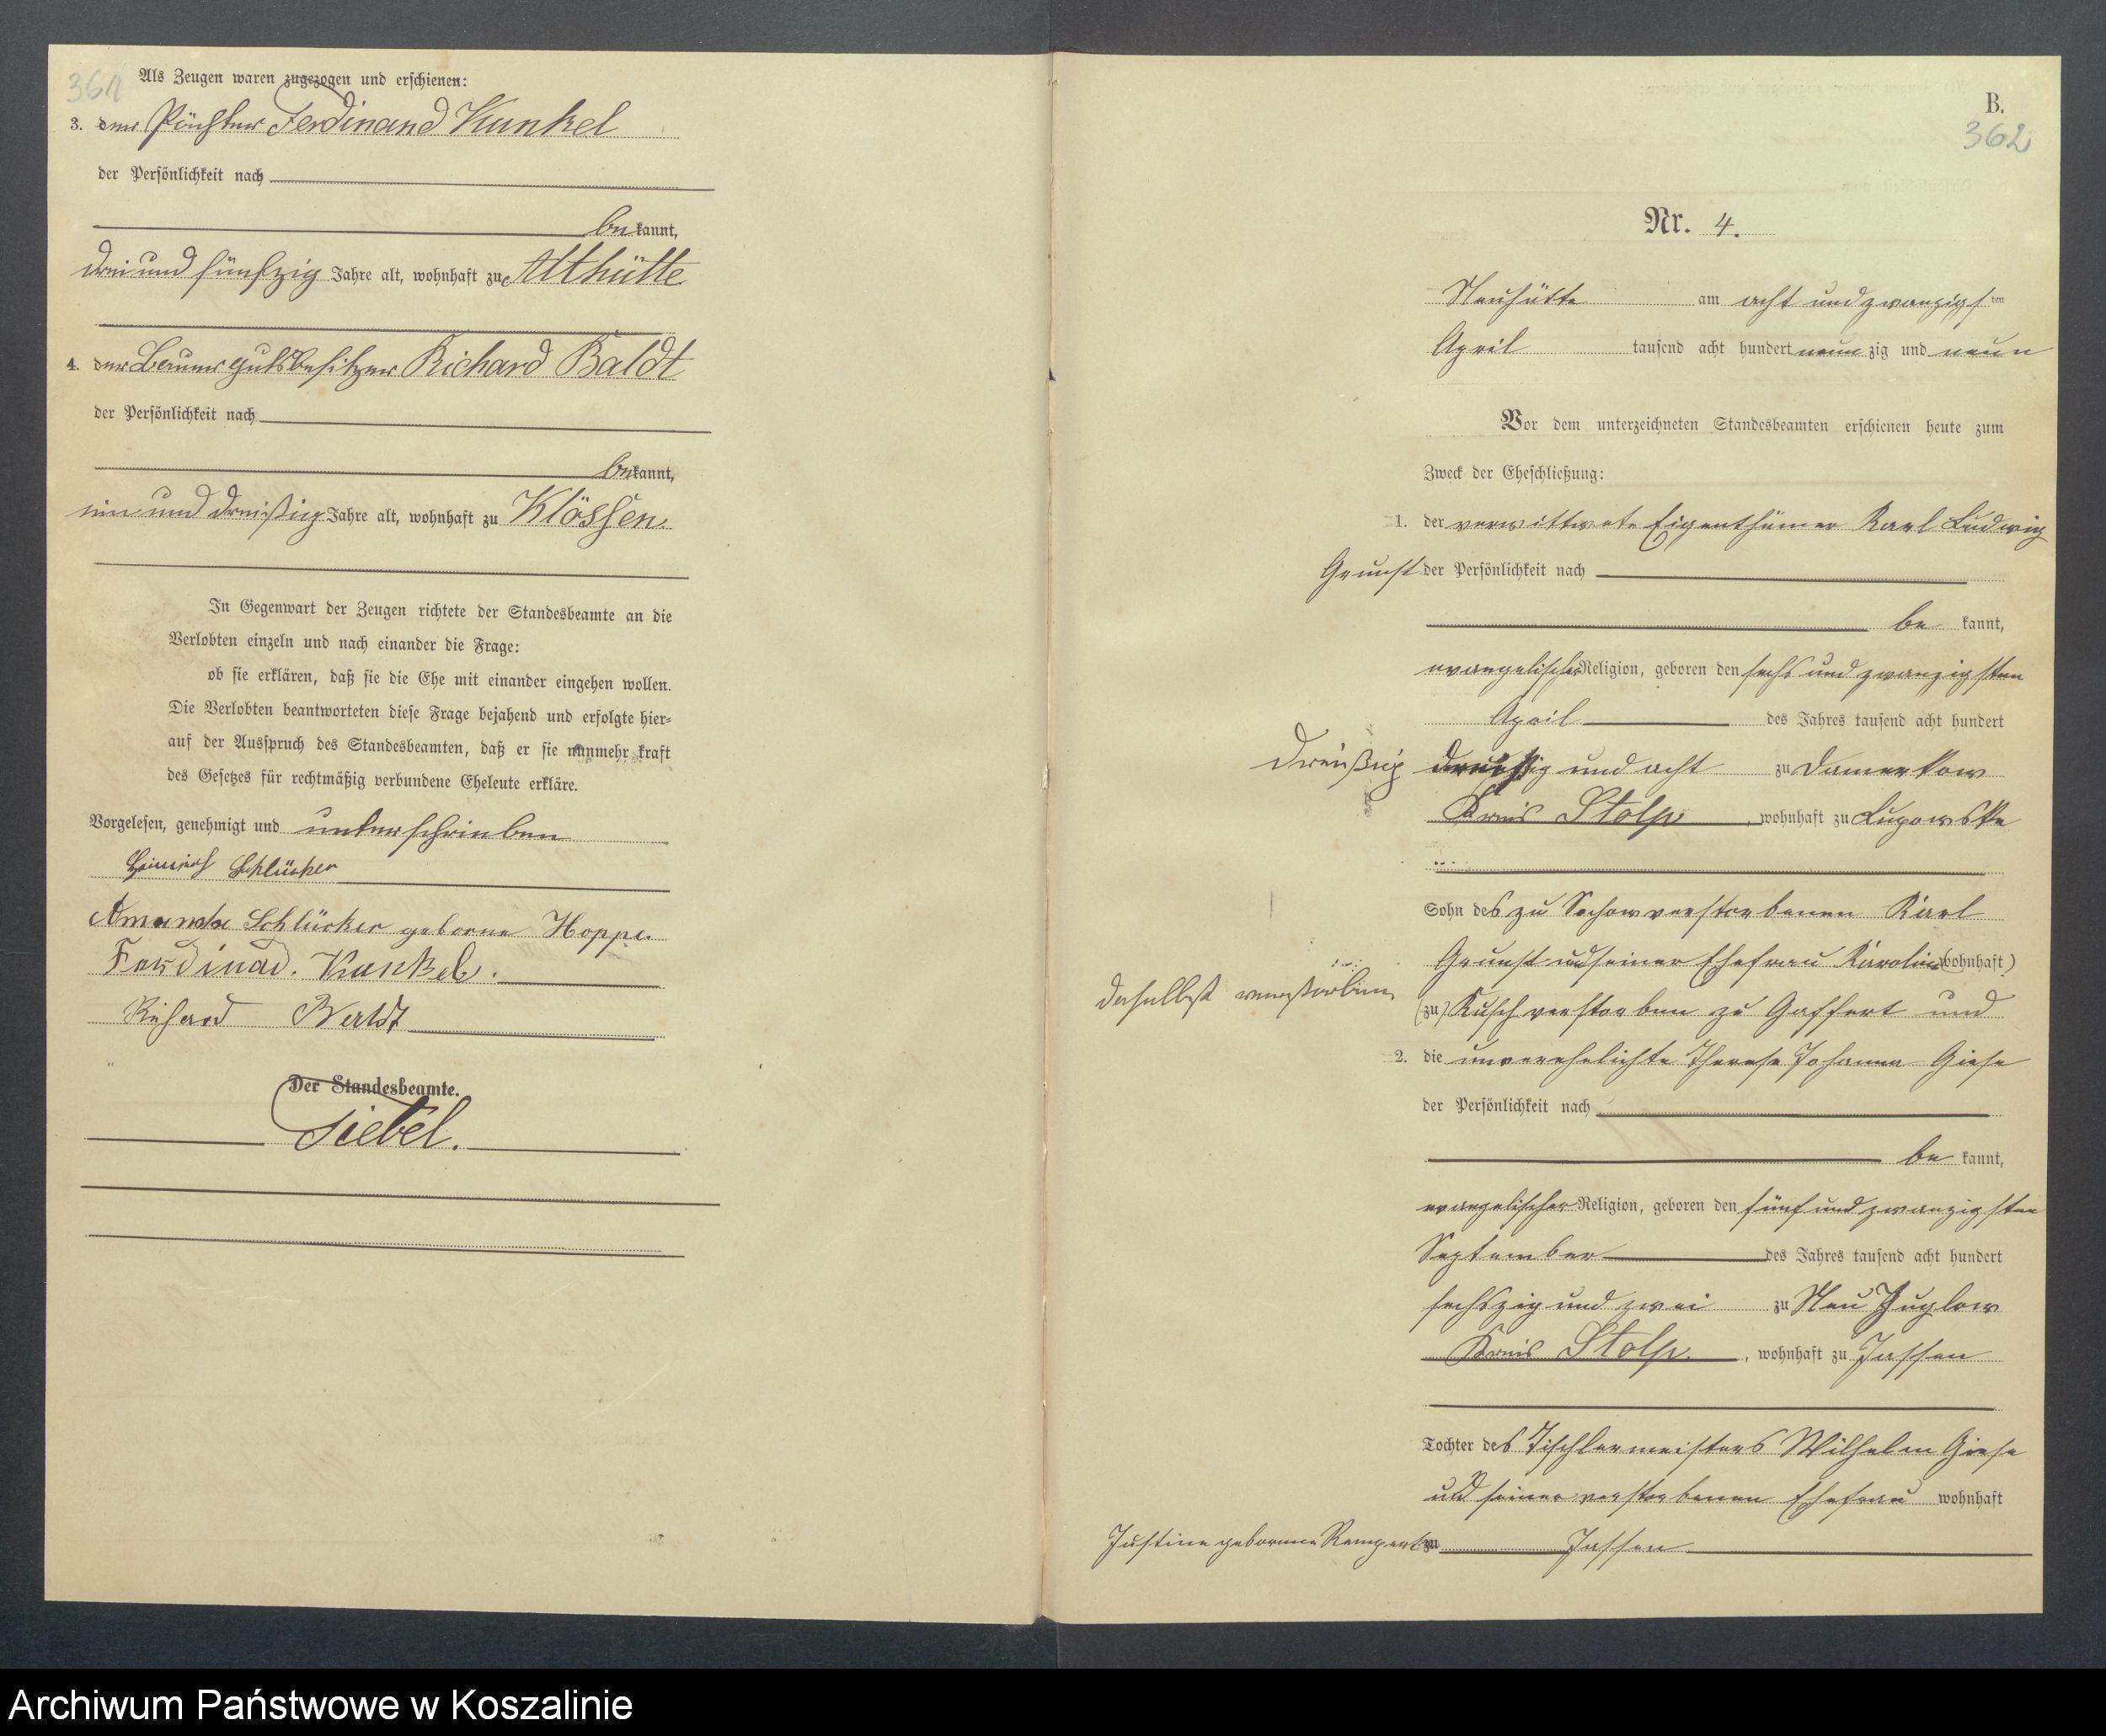 361
Als Zeugen waren zugezogen und erschienen:
3. der Pächter Ferdinand Kunkel
der Persönlichkeit nach
bekannt,
drei und fünfzig Jahre alt, wohnhaft zu Althütte
4. der Bauergutsbesitzer Richard Baldt
der Persönlichkeit nach
bekannt,
ein und dreißig Jahre alt, wohnhaft zu Klössen
In Gegenwart der Zeugen richtete der Standesbeamte an die
Verlobten einzeln und nach einander die Frage:
ob sie erklären, daß sie die Ehe mit einander eingehen wollen.
Die Verlobten beantworteten diese Frage bejahend und erfolgte hier=
auf der Ausspruch des Standesbeamten, daß er sie nunmehr kraft
des Gesetzes für rechtmäßig verbundene Eheleute erkläre.
Vorgelesen, genehmigt und unterschrieben
Heinrich Schlücker
Amanda Schlücker geborne Hoppe.
Ferdinad. Kunkel.
Richard
Der Standesbeamte.
Siebel.
B.
362
Nr. 4.
Neuhütte am acht und zwanzigsten
April tausend acht hundert neunzig und neun
Vor dem unterzeichneten Standesbeamten erschienen heute zum
Zweck der Eheschließung:
1. der verwittwete Eigenthümer Karl Ludwig
Grunst der Persönlichkeit nach
bekannt,
evangelischer Religion, geboren den sechs und zwanzigsten
April des Jahres tausend acht hundert
dreißig dreißig und acht zu Damerkow
Kreis Stolp, wohnhaft zu Lupowske
Sohn des zu Sochow verstorbenen Karl
Grunst und seiner Ehefrau Karoline (wohnhaft)
daselbst verstorben (zu) Kusch verstorben zu Gaffert und
2. die unverehelichte Therese Johanna Giese
der Persönlichkeit nach
bekannt,
evangelischer Religion, geboren den fünf und zwanzigsten
September des Jahres tausend acht hundert
sechszig und zwei zu Neu Juglow
Kreis Stolp, wohnhaft zu Jassen
Tochter des Tischlermeisters Wilhelm Giese
und seiner verstorbenen Ehefrau wohnhaft
Justine geborene zu Jassen
Archiwum Państwowe w Koszalinie